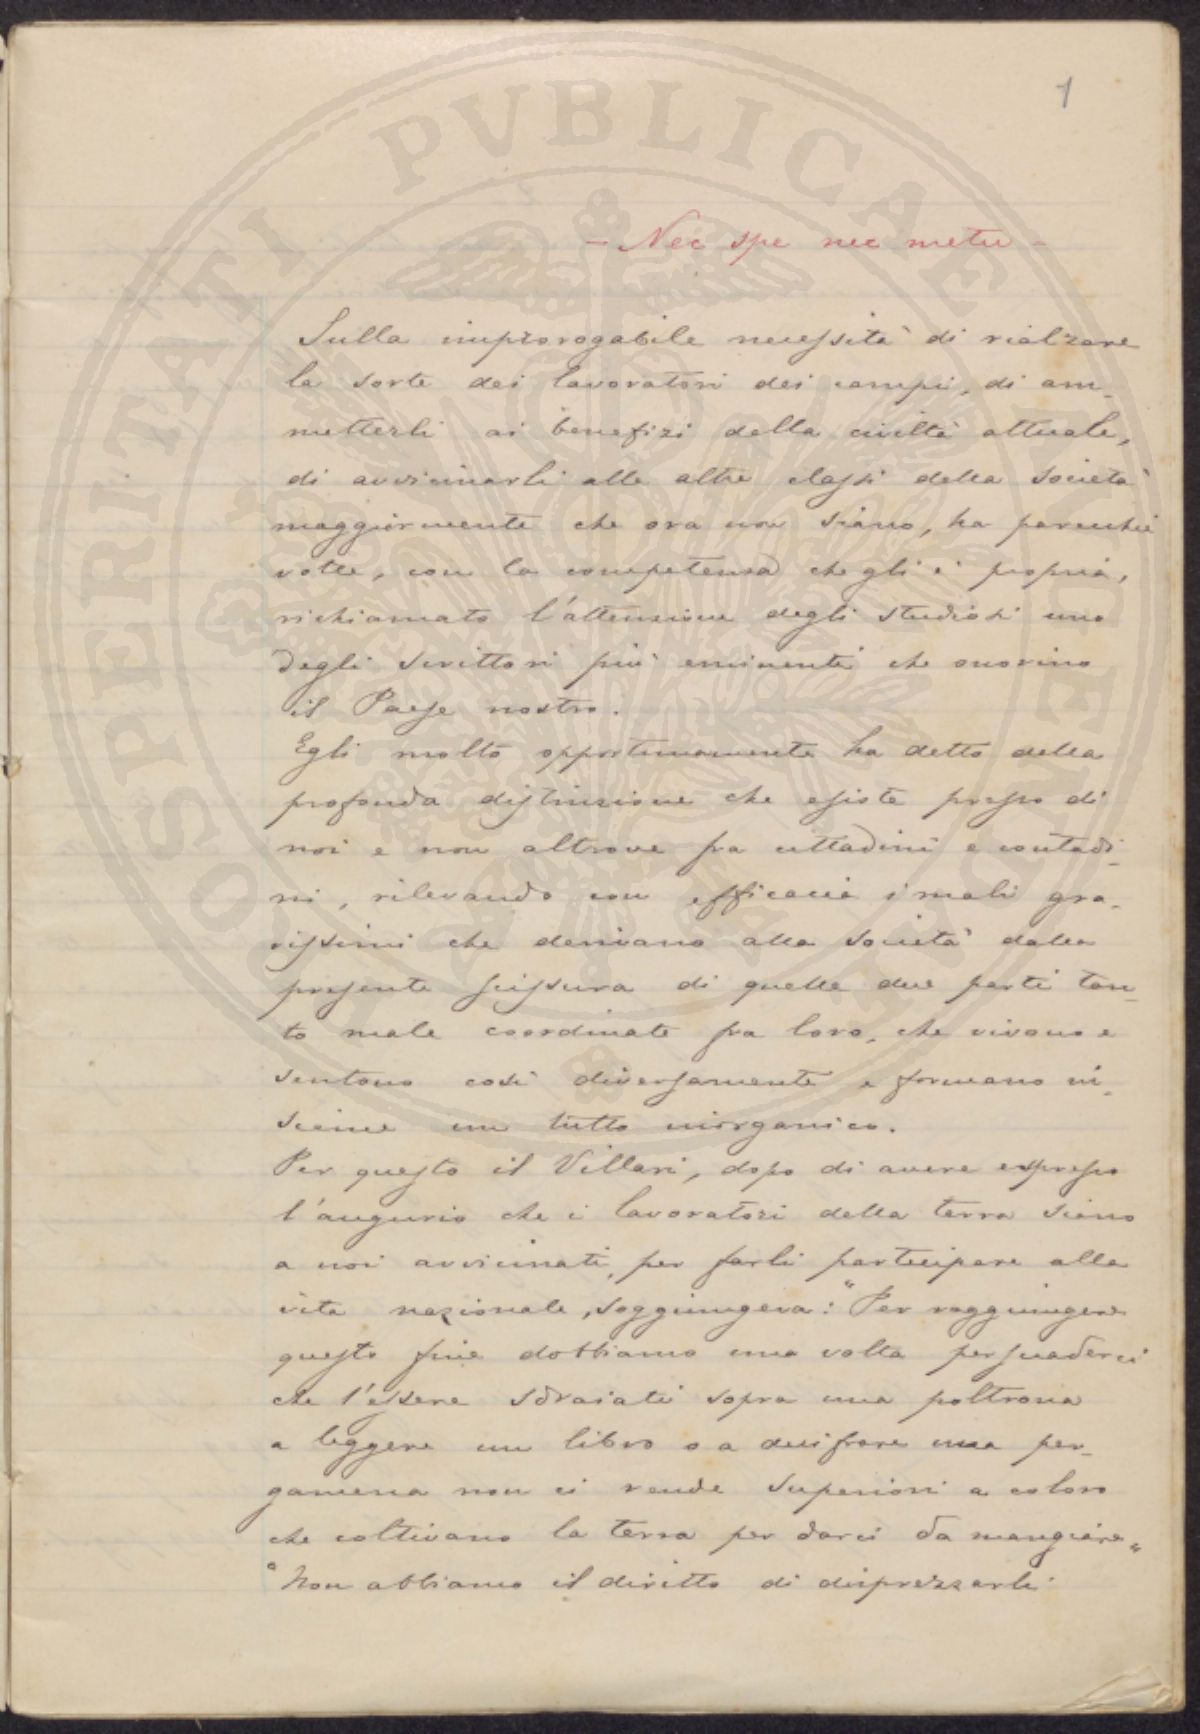 1
- Nec spe nec metu -
Sulla improrogabile necessità di rialzare
la sorte dei lavoratori dei campi, di am-
metterli ai benefizi della civiltà attuale,
di avvicinarli alle altre classi della società
maggiormente che ora non siano, ha parecchie
volte, con la competenza che gli è propria,
richiamato l'attenzione degli studiosi uno
degli scrittori più eminenti che onorino
il Paese nostro.
Egli molto opportunamente ha detto della
profonda distinzione che esiste presso di
noi e non altrove fra cittadini e contadi-
ni, rilevando con efficacia i mali gra-
vissimi che derivano alla società dalla
presente scissura di quelle due parti tan-
to male coordinate fra loro, che vivono e
sentono così diversamente e formano in-
sieme un tutto inorganico.
Per questo il Villari, dopo di avere espresso
l'augurio che i lavoratori della terra sieno
a noi avvicinati, per farli partecipare alla
vita nazionale, soggiungeva: "Per raggiungere
questo fine dobbiamo una volta persuaderci
che l'essere sdraiati sopra una poltrona
a leggere un libro o a decifrare una per-
gamena non ci rende superiori a coloro
che coltivano la terra per darci da mangiare"
"Non abbiamo il diritto di disprezzarli
SOSPERITATI PVBLICAE AVGENDAE